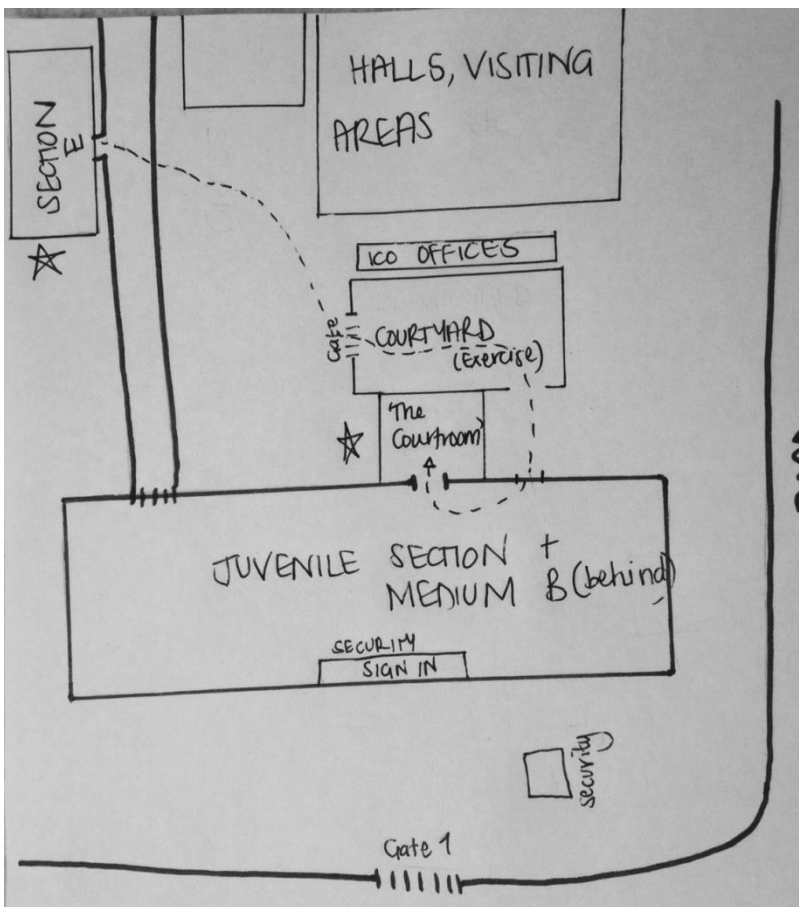 HALLS, VISITING
AREAS
SECTION
E
ICO OFFICES
Gate
COURTYARD
(Exercise)
'The
Courtroom'
JUVENILE SECTION +
MEDIUM B (behind)
SECURITY
SIGN IN
security
Gate 1